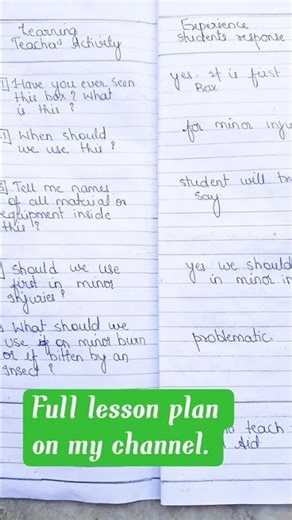 Learning
Teacher's Activity
Experience
students response
1] Have you ever seen
this box? What
is this?
yes. It is fast
Box
When should
we use this?
for minor inju
3] Tell me names
of all material or
equipment inside
this?
student will tr
say
should we use
first in minor
injuries?
yes we should
in minor in
What should we
use if on minor burn
or if bitten by an
insect?
problematic.
to teach
Aid
Full lesson plan
on my channel.